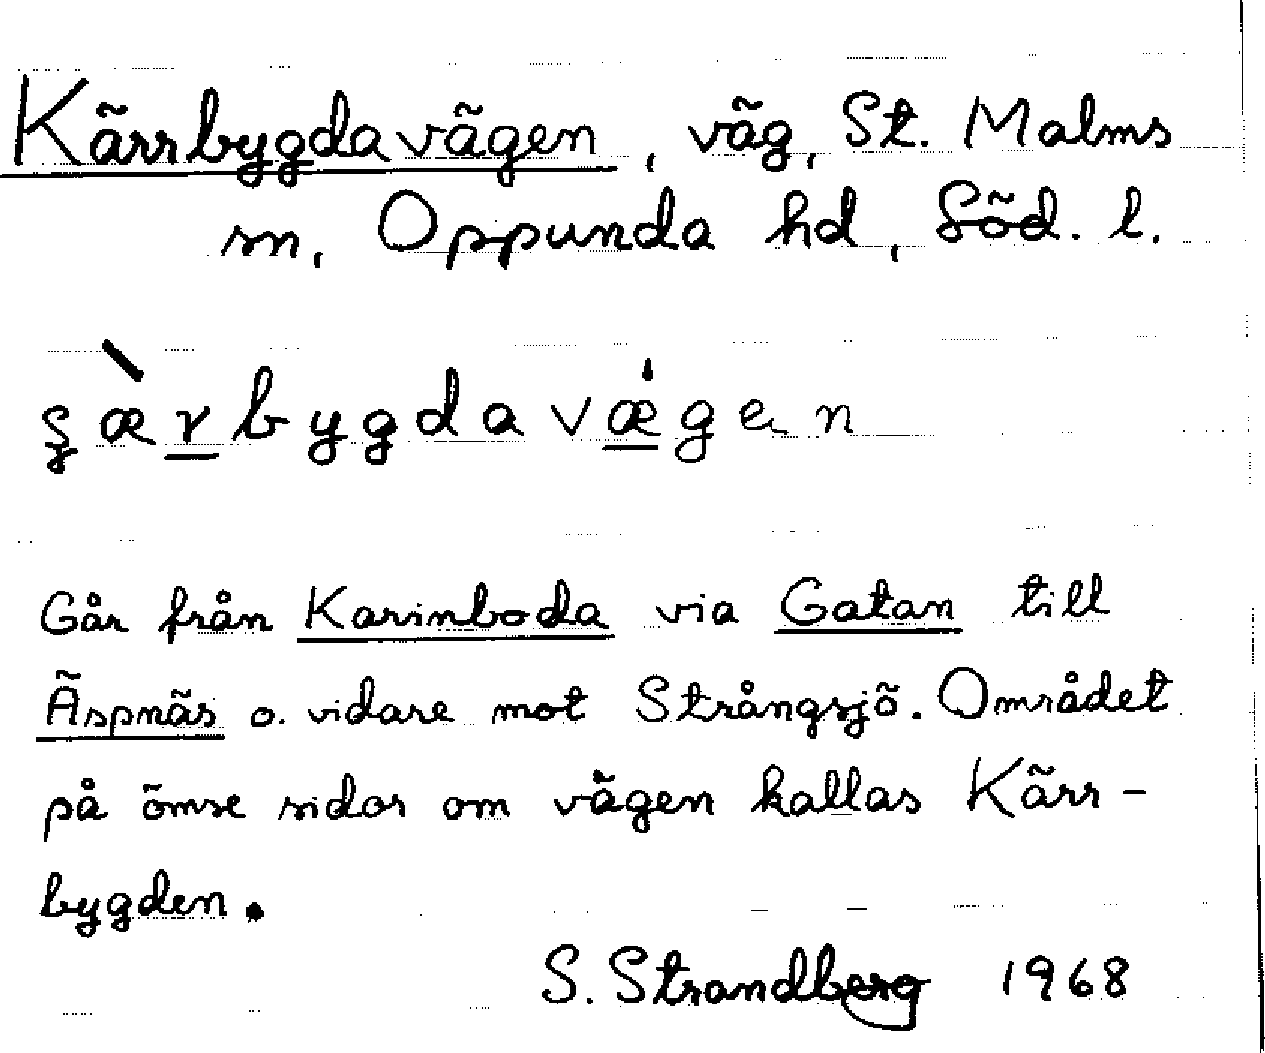 Kärrbygdavägen, väg, St. Malms
sn, Oppunda hd, Söd. l.
ʂæ̀r̲bygdavǽ̲gen
Går från Karinboda via Gatan till
Äspnäs o. vidare mot Strångsjö. Området
på ömse sidor om vägen kallas Kärr-
bygden.
S. Strandberg 1968